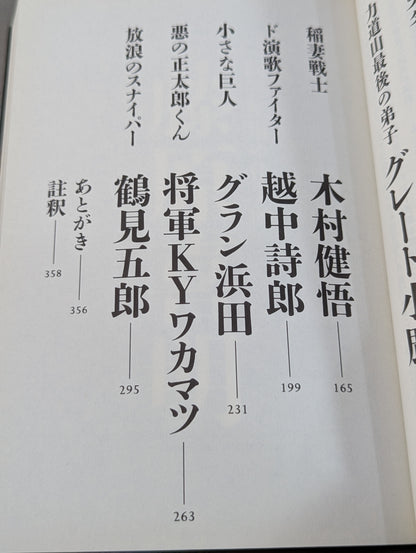 力道山最後の弟子
グレート小
稲妻戦士
木村健悟
165
ド演歌ファイター
越中詩郎
199
小さな巨人
グラン浜田
231
悪の正太郎くん
将軍KYワカマツ
263
放浪のスナイパー
鶴見五郎
295
あとがき
356
註釈
358